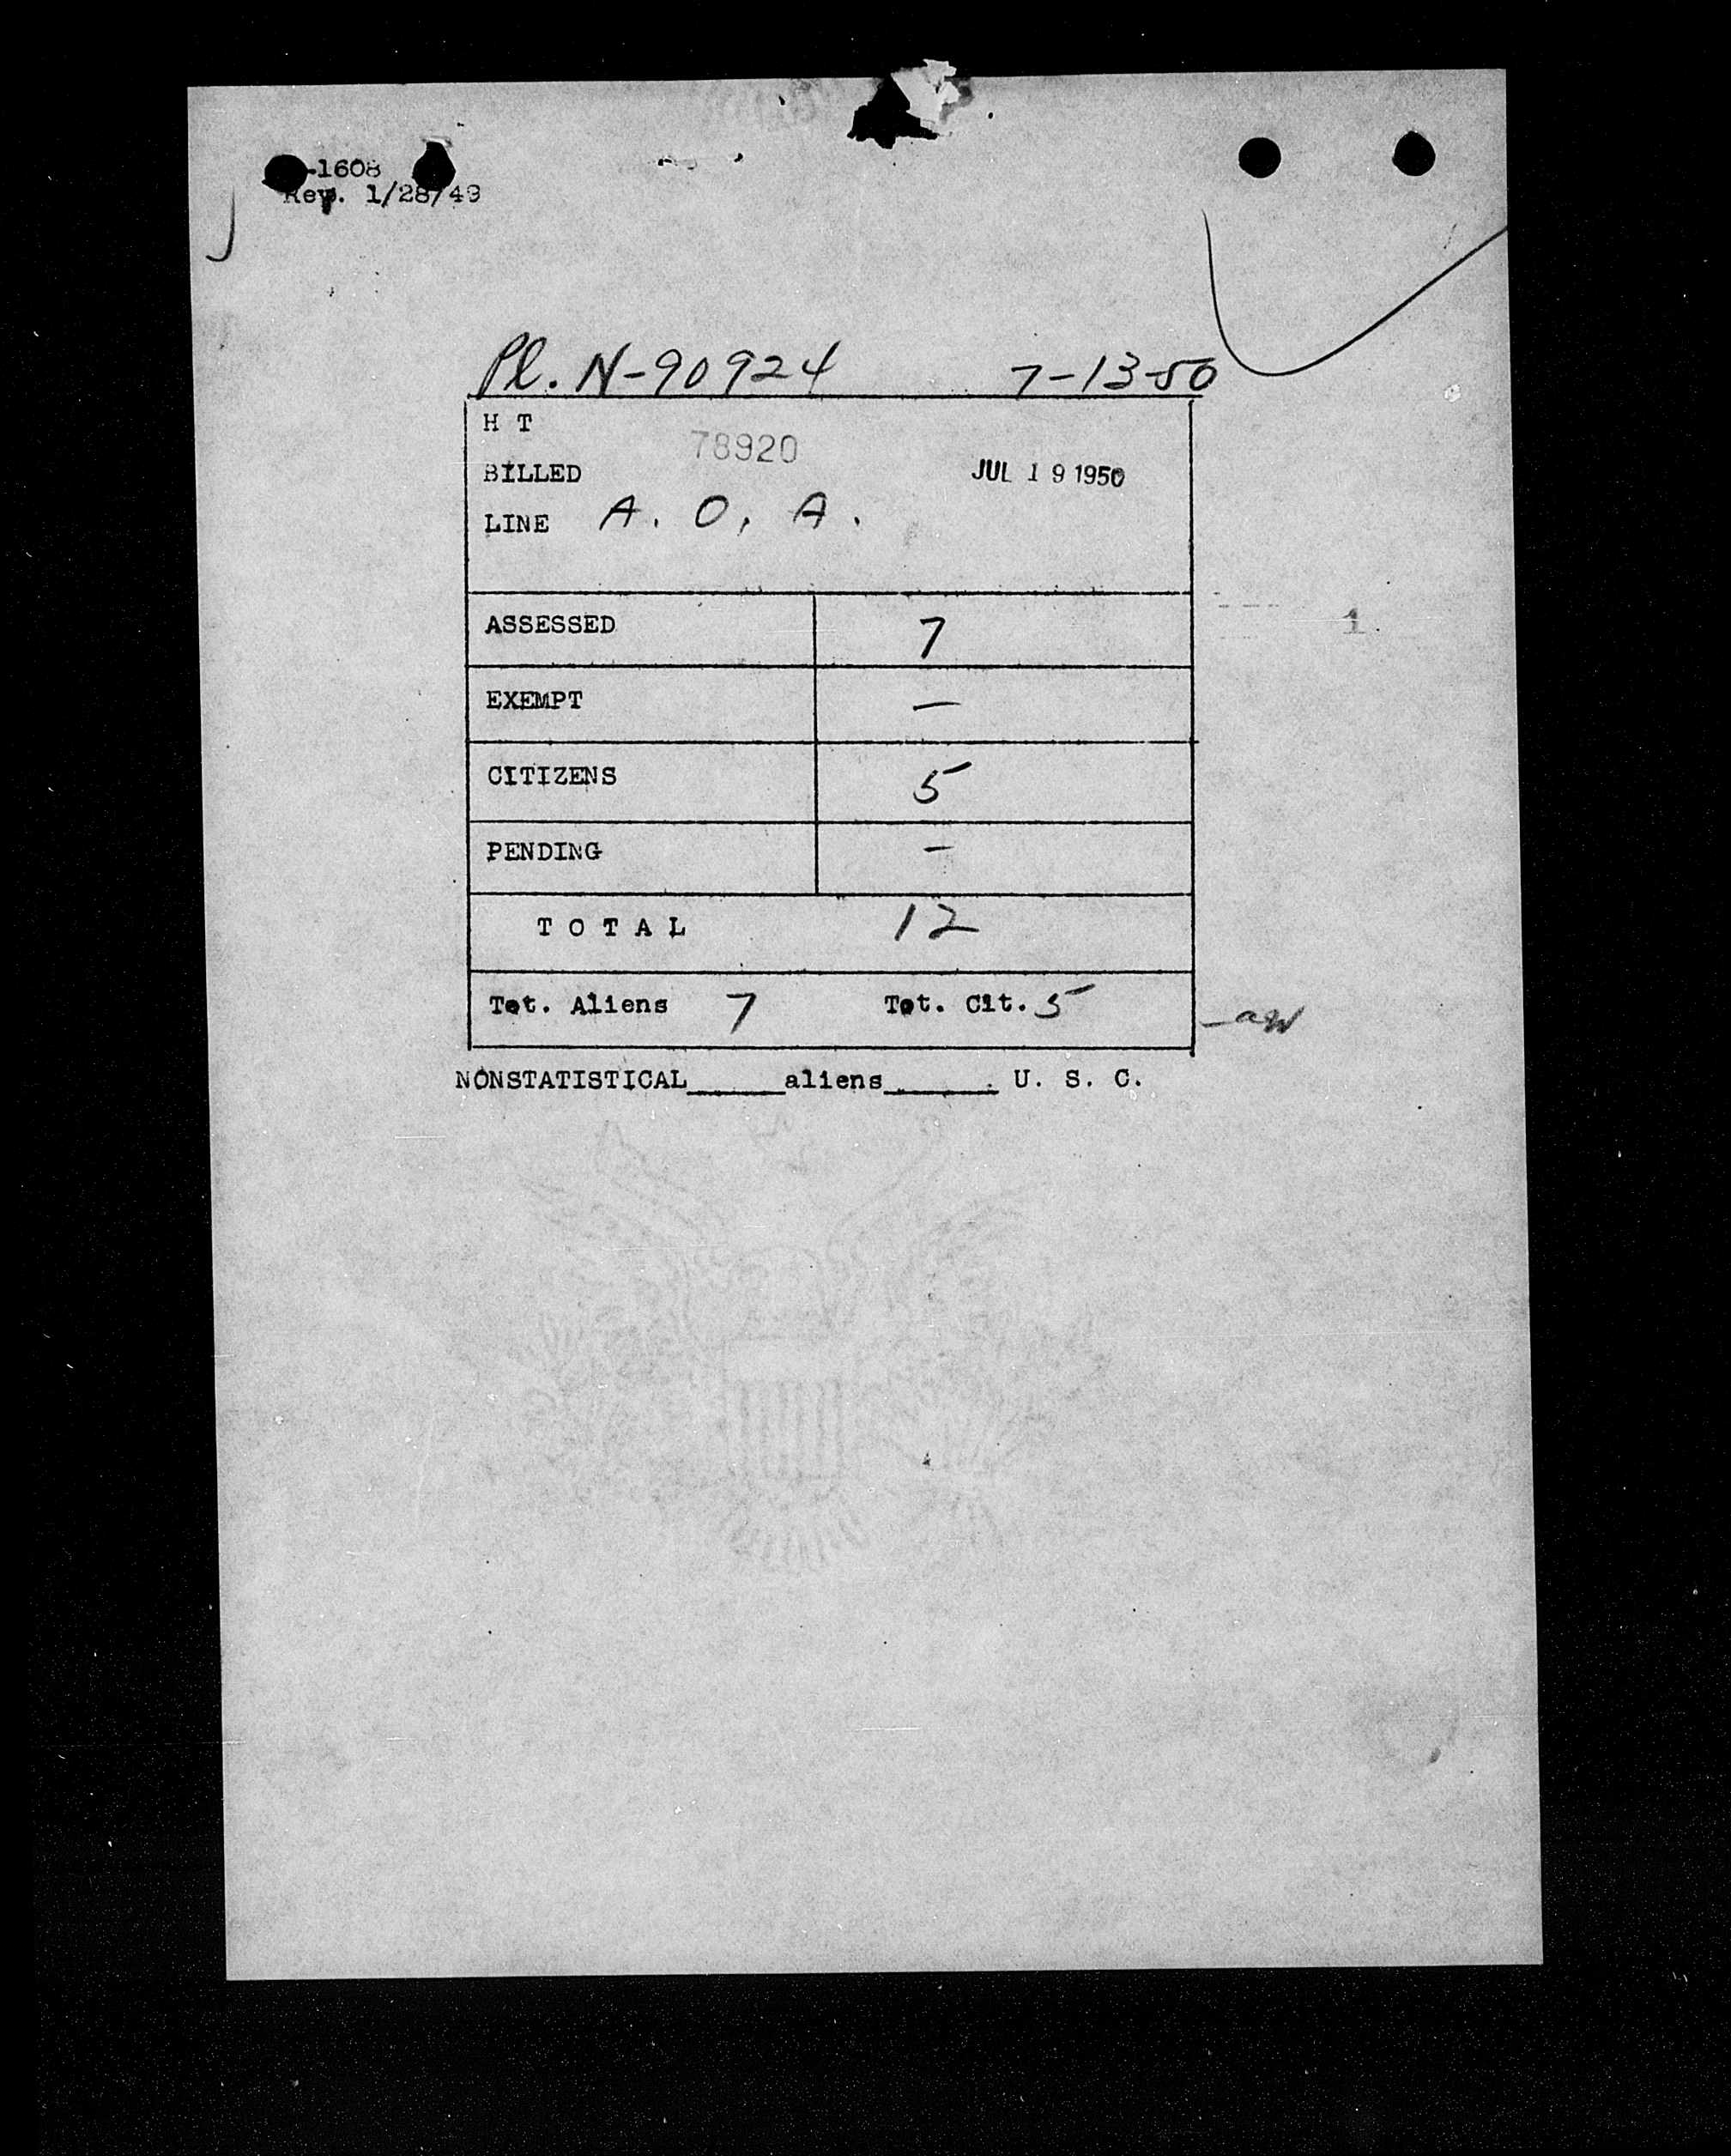 -1608
Rev. 1/28/49
Pl. N-90924 7-13-50
H T
78920
BILLED JUL 19 1950
LINE A. O. A.
ASSESSED 7
1.
EXEMPT —
CITIZENS 5
PENDING —
T O T A L 12
Tot. Aliens 7 Tot. Cit. 5
NONSTATISTICAL_____aliens______. U. S. C.